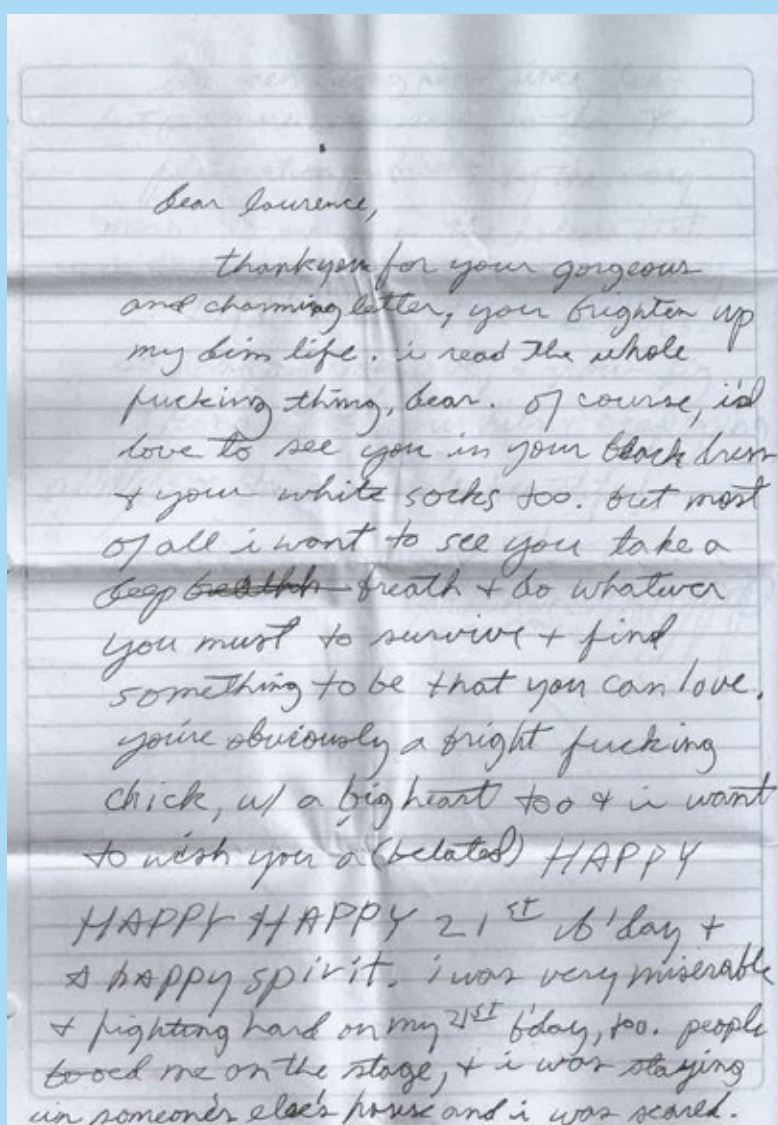 dear laurence,
thankyou for your gorgeous
and charming letter, you brighten up
my dim life. i read the whole
fucking thing, dear. of course, i'd
love to see you in your black dress
& your white socks too. but most
of all i want to see you take a
deep breath & do whatever
you must to survive & find
something to be that you can love.
you're obviously a bright fucking
chick, w/ a big heart too & i want
to wish you a (belated) HAPPY
HAPPY HAPPY 21ST b'day &
a happy spirit. i was very miserable
& fighting hard on my 21ST b'day, too. people
booed me on the stage, & i was staying
in someone's else's house and i was scared.